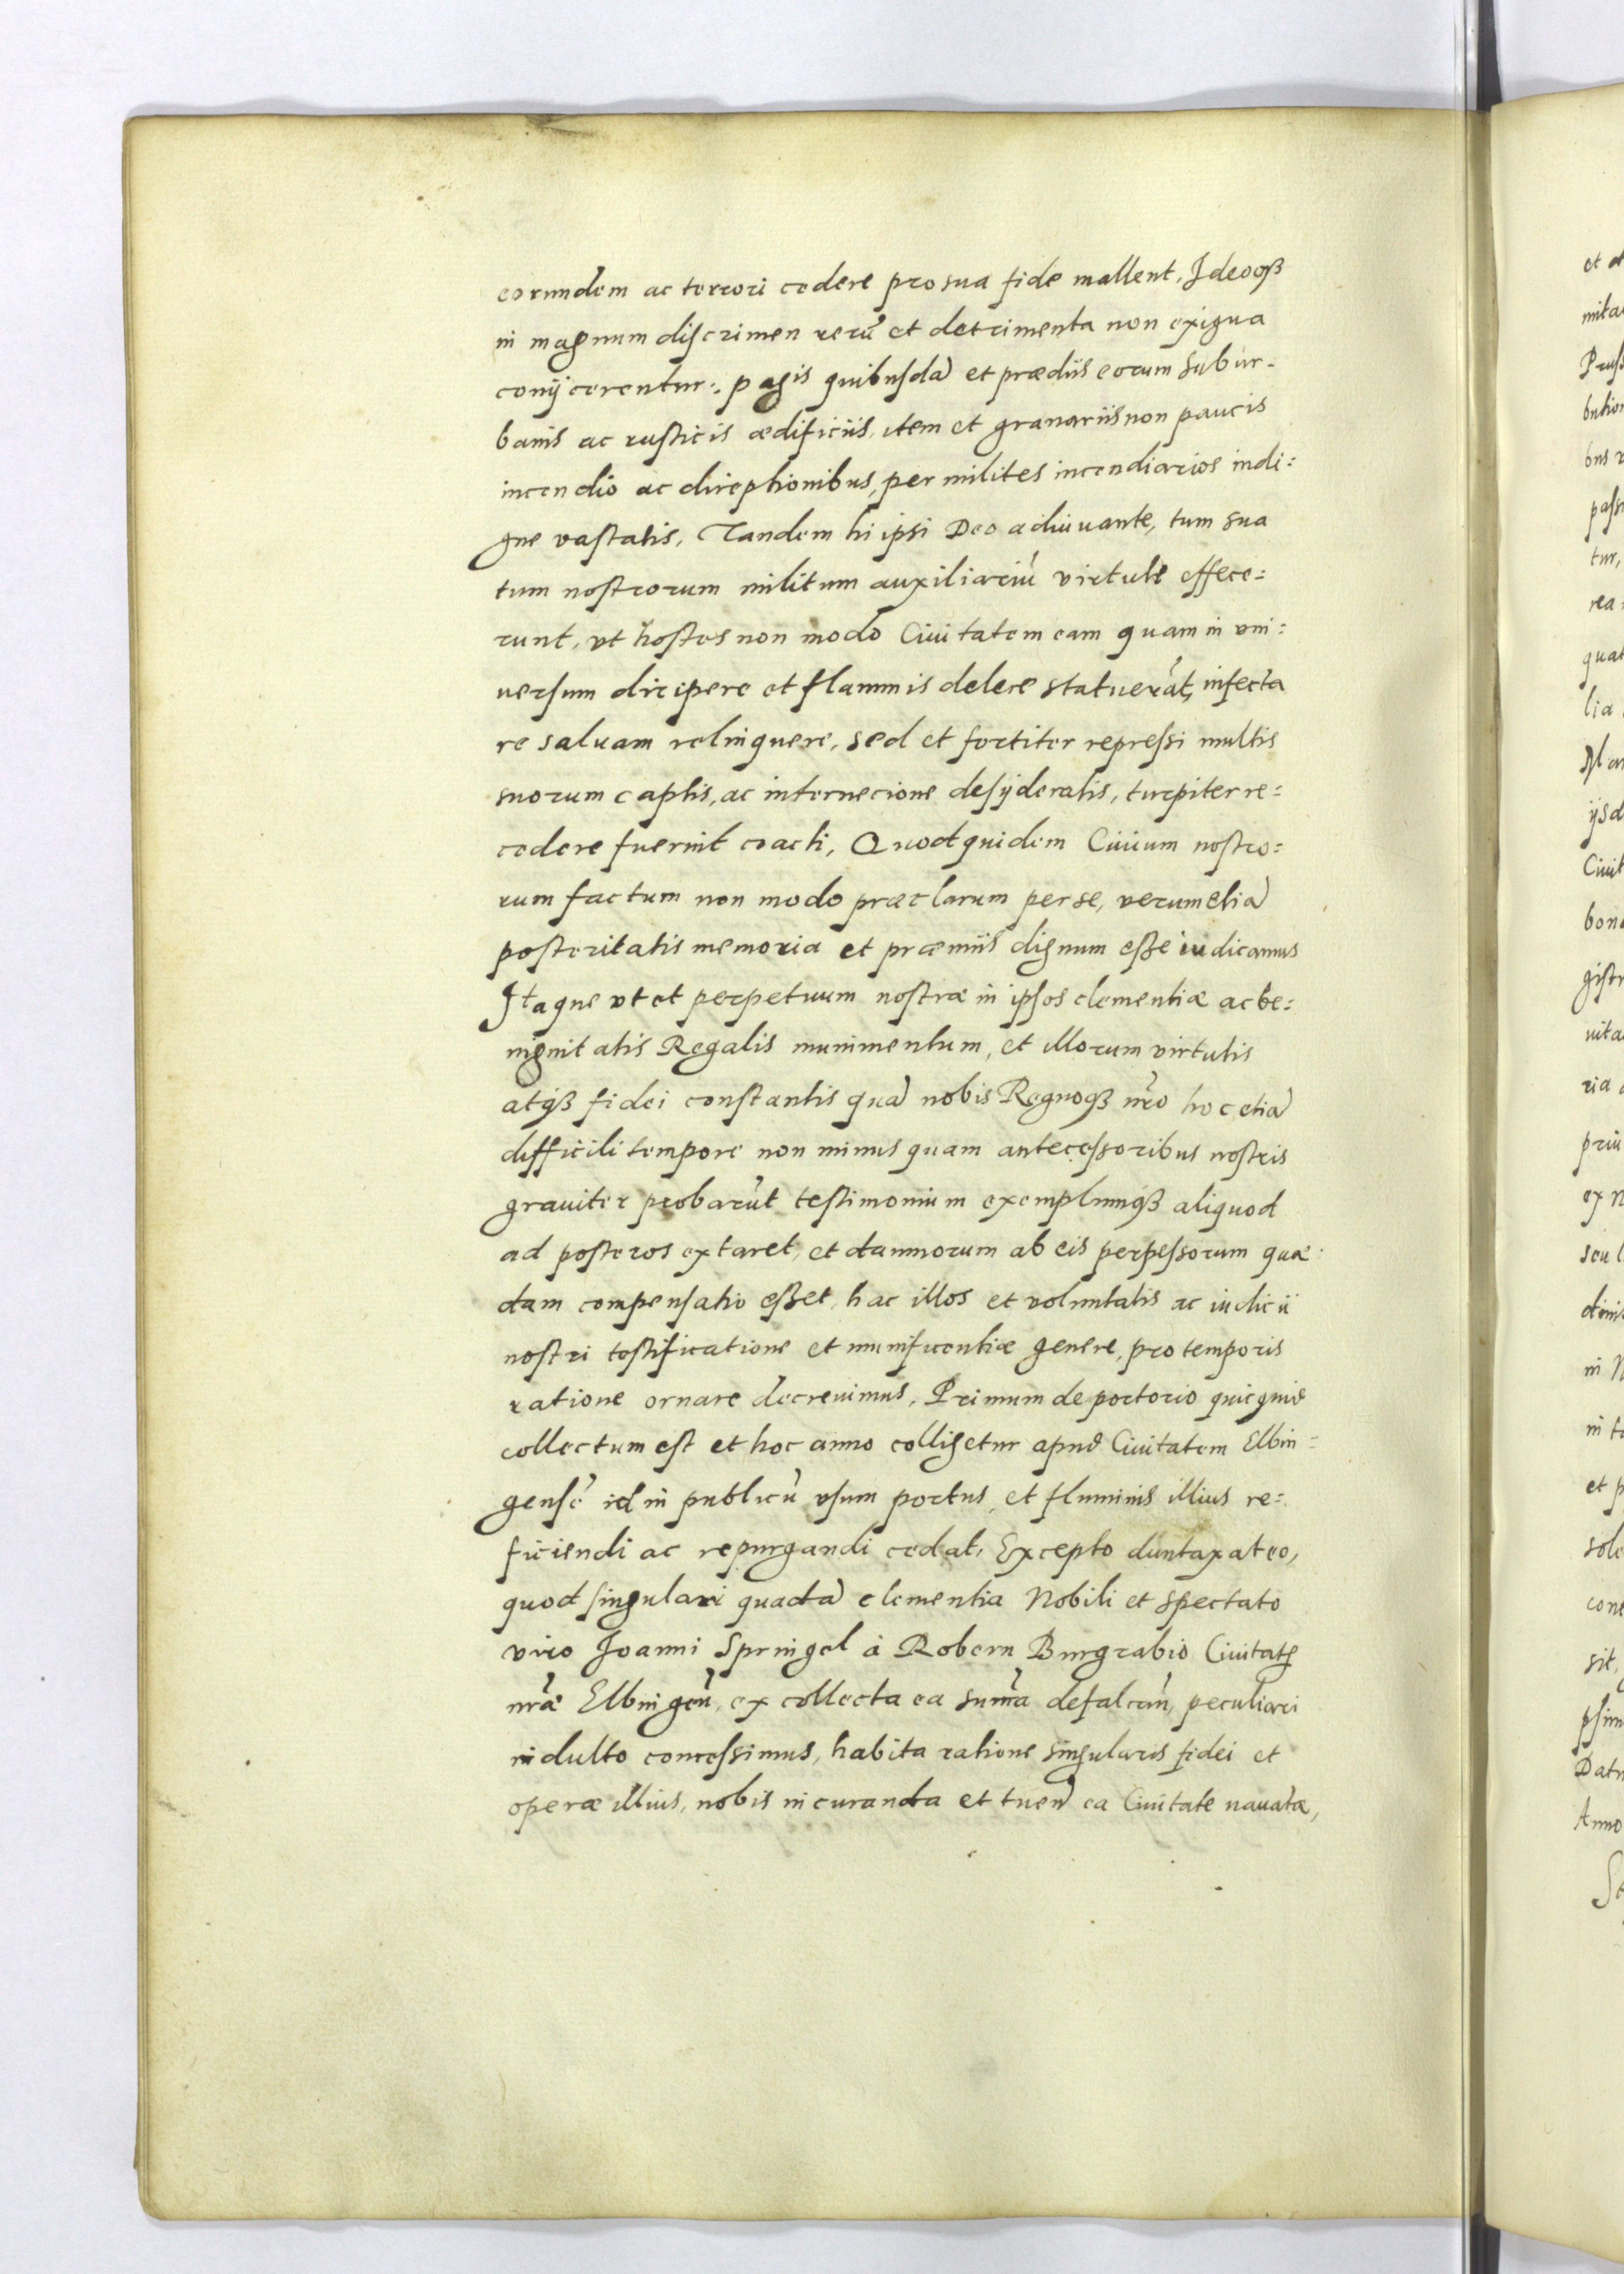 eorundem ac terrori cedere pro sua fide mallent, Ideoqꝫ
in magnum discrimen rerū et detrimenta non exigua
conijcerentur: pagis quibusdā et prædiis eorum subur-
banis ac rusticis ædificiis, item et granariis non paucis
incendio ac direptionibus, per milites incendiarios indi:
gne vastatis, Tandem hi ipsi Deo adiuuante, tum sua
tum nostrorum militum auxiliariū virtute effece:
runt, vt hostes non modo Ciuitatem eam quam in vni:
uersum diripere et flammis delere statuerāt, infecta
re saluam relinquere, sed et fortiter repressi multis
suorum captis, ac internecione desyderatis, turpiter re:
cedere fuerint coacti, Quod quidem Ciuium nostro:
rum factum non modo præclarum per se, verum etiā
posteritatis memoria et præmiis dignum esse iudicamus
Itaque vt et perpetuum nostræ in ipsos clementiæ ac be:
nignitatis Regalis munimentum, et illorum virtutis
atqꝫ fidei constantis quā nobis Regnoqꝫ nr̄o hoc etiā
difficili tempore non minus quam antecessoribus nostris
grauiter probarūt testimonium exemplumqꝫ aliquod
ad posteros extaret, et damnorum ab eis perpessorum quæ
dam compensatio esset, hac illos et voluntatis ac iudicii
nostri testificatione et munificentiæ genere, pro temporis
ratione ornare decreuimus, Primum de portorio quicquid
collectum est et hoc anno colligetur apud Ciuitatem Elbin=
gensē id in publicū vsum portus, et fluminis illius re:
ficiendi ac repurgandi cedat, Excepto duntaxat eo,
quod singulari quadā clementia Nobili et spectato
viro Joanni Springel à Robern Burgrabio Ciuitatꝭ
nr̄æ Elbingeñ, ex collecta ea sum̄a defalcañ, peculiari
indulto concessimus, habita ratione singularis fidei et
operæ illius, nobis in curanda et tuenđ ea Ciuitate nauatæ,